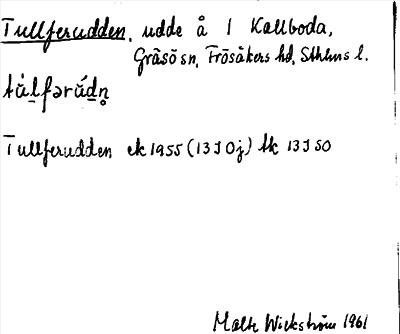 Tullferudden, udde å 1 Kallboda,
Gräsö sn, Frösåkers hd, Sthlms l.
tùl̠fərúd̠n̥
Tullferudden ek 1955 (13J 0j) tk 13J SO
Malte Wickström 1961